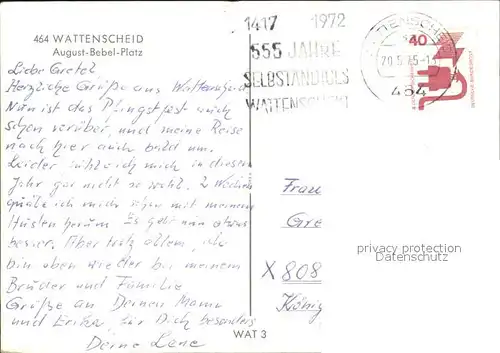 464 WATTENSCHEID
August-Bebel-Platz
1417 1972
555 JAHRE
WATTENSCHEID
464
40
Liebe Gretel
Herzliche Grüße aus Wattenscheid
Nun ist das Pfingstfest auch
schon vorüber, und meine Reise
nach hier auch bald um.
Leider fühle ich mich in diesem
Jahr gar nicht so wohl. 2 Wochen
quäle ich mich schon mit meinem
Husten herum. Es geht nun etwas
besser. Aber trotz allem, ich
bin eben wieder bei meinem
Bruder und Familie
Grüße an Deinen Mann
und Erika, für Dich besonders
Deine Lene
Frau
Gre
privacy protection
Datenschutz
X 808
König
WAT 3